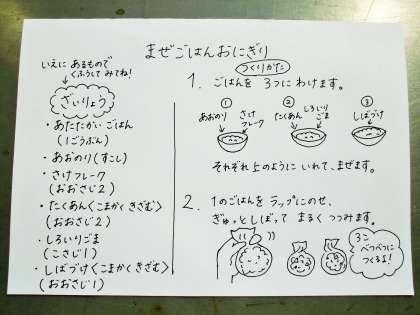 まぜごはんおにぎり
いえに あるもので
くふうして みてね!
ざいりょう
・あたたかい ごはん
(1ごうぶん)
・あおのり(すこし)
・さけフレーク
(おおさじ2)
・たくあん<こまかく きざむ>
(おおさじ2)
・しろいりごま
(こさじ1)
・しばづけ<こまかく きざむ>
(おおさじ1)
つくりかた
1. ごはんを 3つに わけます。
① ② ③
あおのり さけフレーク
たくあん しろいりごま
しばづけ
それぞれ 上のように いれて、まぜます。
2. 1のごはんを ラップにのせ、
ぎゅっと しぼって まるく つつみます。
3こ
べつべつに
つくるよ!